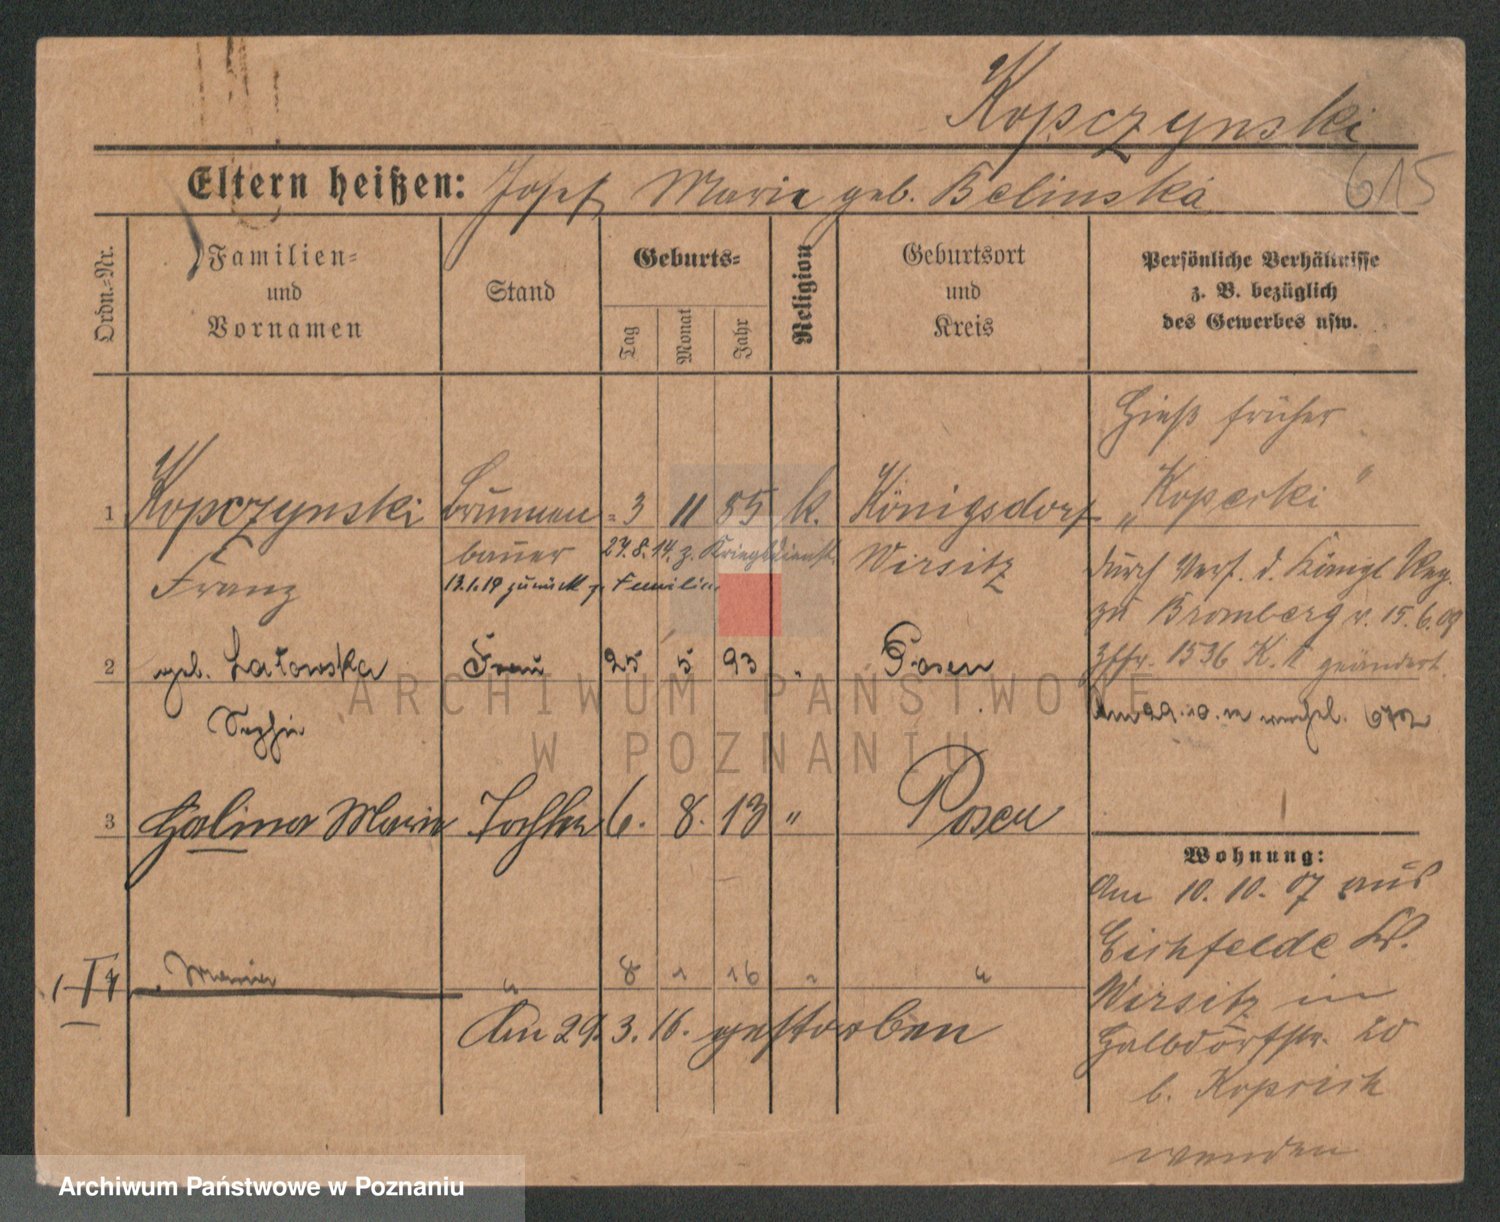 Kopczynski
615
Eltern heißen: Josef Marie geb. Belinska
Ordn.=Nr.
Familien=
und
Vornamen
Stand
Geburts=
Tag
Monat
Jahr
Religion
Geburtsort
und
Kreis
Persönliche Verhältnisse
z. B. bezüglich
des Gewerbes usw.
1 Kopczynski Brunnen= 3 11 85 k. Königsdorf
Franz bauer 27.8.14. z. Kriegsdienst Wirsitz
13.1.19 zurück z. Familie
2 geb. Latowska Frau 25 5 93 " Posen
3 Halina Marie Tochter 6. 8. 13 " Posen
4 Maria " 8 1 16 " "
Am 29.3.16. gestorben
Hieß früher
„Koperski"
durch Verf. d. Königl Reg.
zu Bromberg v. 15.6.09
1536 K. geändert.
Wohnung:
Am 10.10.07 aus
Eichfelde Kr.
Wirsitz in
Halbdorfstr. 20
b.
wenden
ARCHIWUM PAŃSTWOWE
W POZNANIU
Archiwum Państwowe w Poznaniu